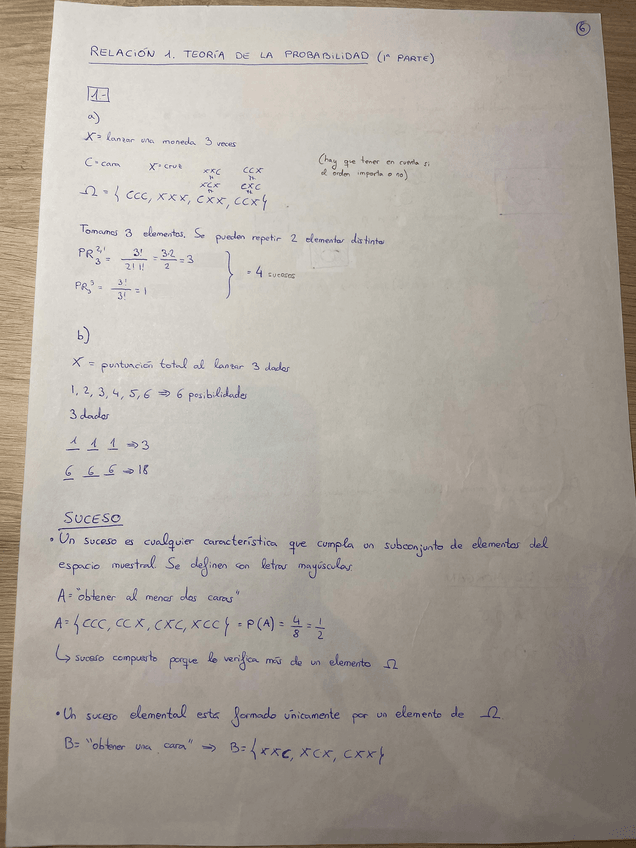 6
RELACIÓN 1. TEORÍA DE LA PROBABILIDAD (1ª PARTE)
1-
a)
X = lanzar una moneda 3 veces
C = cara X = cruz
(hay que tener en cuenta si
el orden importa o no)
XXC CCX
XCX CXC
Ω = { CCC, XXX, CXX, CCX }
Tomamos 3 elementos. Se pueden repetir 2 elementos distintos
PR₃²,¹ = 3!/2! 1! = 3·2/2 = 3
= 4 sucesos
PR₃³ = 3!/3! = 1
b)
X = puntuación total al lanzar 3 dados
1, 2, 3, 4, 5, 6 ⇒ 6 posibilidades
3 dados
1 1 1 ⇒ 3
6 6 6 ⇒ 18
SUCESO
• Un suceso es cualquier característica que cumpla un subconjunto de elementos del
espacio muestral. Se definen con letras mayúsculas.
A = "obtener al menos dos caras"
A = { CCC, CCX, CXC, XCC } = P(A) = 4/8 = 1/2
↳ suceso compuesto porque lo verifica más de un elemento Ω
• Un suceso elemental está formado únicamente por un elemento de Ω
B = "obtener una cara" ⇒ B = { XXC, XCX, CXX }